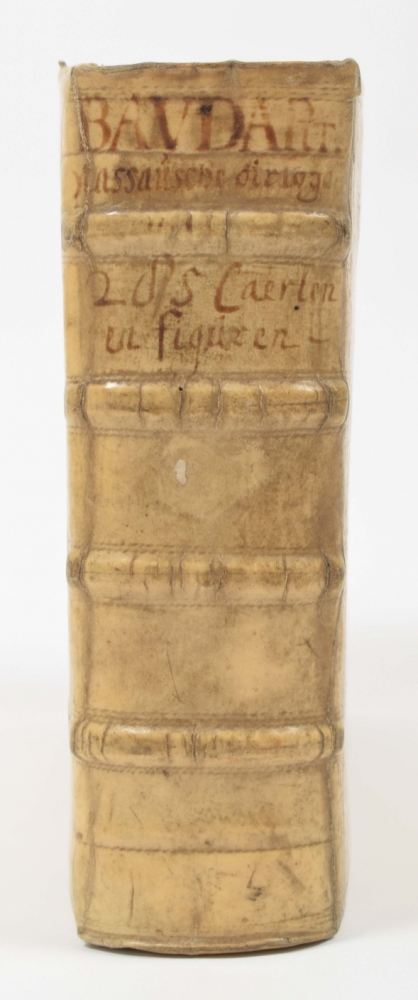 BAVDART.
Nassausche Oirigge
285 Caerten
en figuren